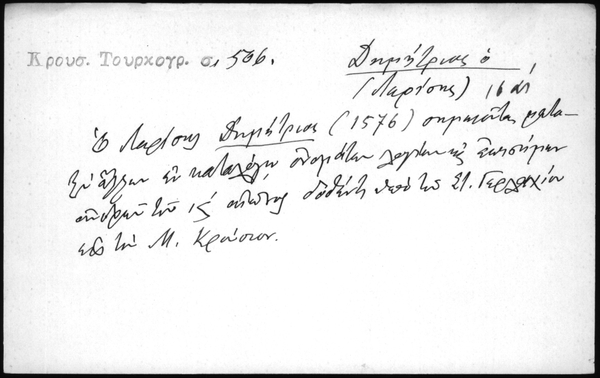 Κρουσ. Τουρκογρ. σ. 506.
Δημήτριος ὁ
(Λαρίσης) 16 αἰ
Ὁ Λαρίσης Δημήτριος (1576) σημειοῦται μετα-
ξὺ ἄλλων ἐν καταλόγῳ ὀνομάτων λογίων κ ἐπισήμων
ἀνδρῶν τοῦ ις΄ αἰῶνος δοθέντι ὑπὸ τοῦ Στ. Γερλαχίου
εἰς τὸν Μ. Κρούσιον.